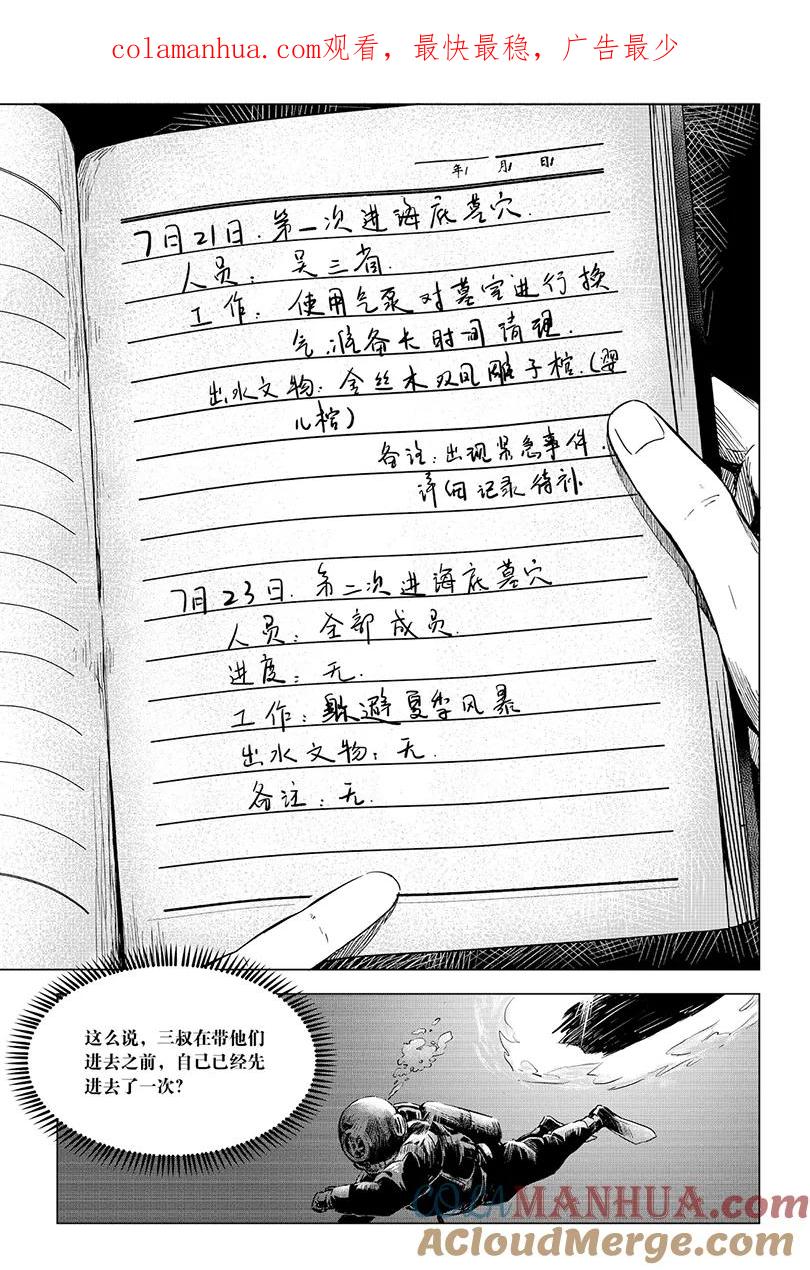 colamanhua.com观看，最快最稳，广告最少
年 月 日
7月21日.第一次进海底墓穴.
人员：吴三省.
工作：使用气泵对墓室进行换
气,准备长时间清理.
出水文物：金丝木双凤雕子棺.(婴
儿棺)
备注：出现紧急事件.
详细记录待补
7月23日.第二次进海底墓穴
人员：全部成员.
进度：无.
工作：躲避夏季风暴
出水文物：无.
备注：无.
这么说，三叔在带他们
进去之前，自己已经先
进去了一次？
COLAMANHUA.COM
ACloudMerge.com